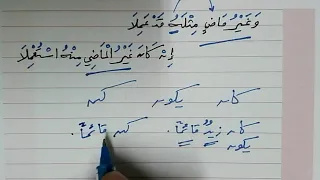 وَغَيْرُ مَاضٍ مِثْلَهُ قَدْ عَمِلَا
إِنْ كَانَ غَيْرُ الْمَاضِي مِنْهُ اسْتُعْمِلَا
كان يكون كن
كان زيدٌ قائماً. كن قائماً.
يكون